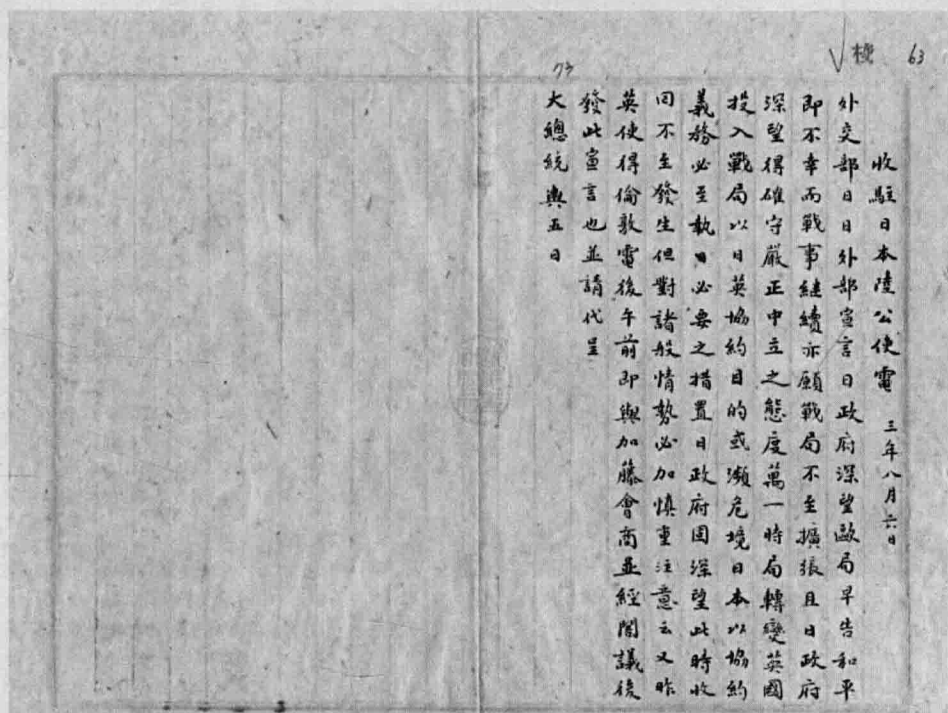 63
73
收駐日本陸公使電 三年八月六日
外交部日日外部宣言日政府深望歐局早告和平
即不幸而戰事継續亦願戰局不至擴張且日政府
深望得確守嚴正中立之態度萬一時局轉變英國
投入戰局以日英協約目的或瀕危境日本以協約
義務必至執必要之措置日政府固深望此時收
回不至發生但對諸般情勢必加慎重注意云又昨
英使得倫敦電後午前即與加藤會商並經閣議後
發此宣言也並請代呈
大總統輿五日